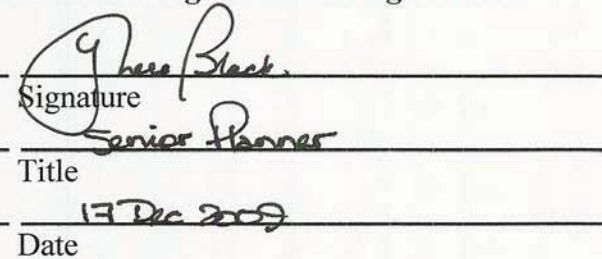 Black.
Signature
Senior Planner
Title
17 Dec 2009
Date